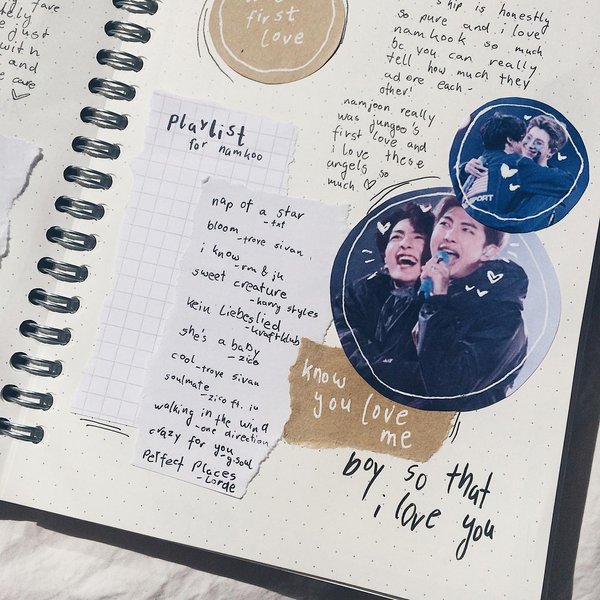 fare
tely
e just
with
t and
care
♡
first
love
ship is honestly
so pure and i love
namkook so much
bc you can really
tell how much they
adore each-
other!
namjoon really
was jungoo's
first love and
i love these
angels so
much ♡
PORT
playlist
for namkoo
nap of a star
-txt
bloom-troye sivan
i know-rm & jk
sweet creature
-harry styles
kein Liebeslied
-kraftklub
she's a baby
-zico
cool-troye sivan
soulmate-zico ft. iu
walking in the wind
-one direction
crazy for you
-g.soul
perfect places
-Lorde
know
you love
me
boy so that
i love you